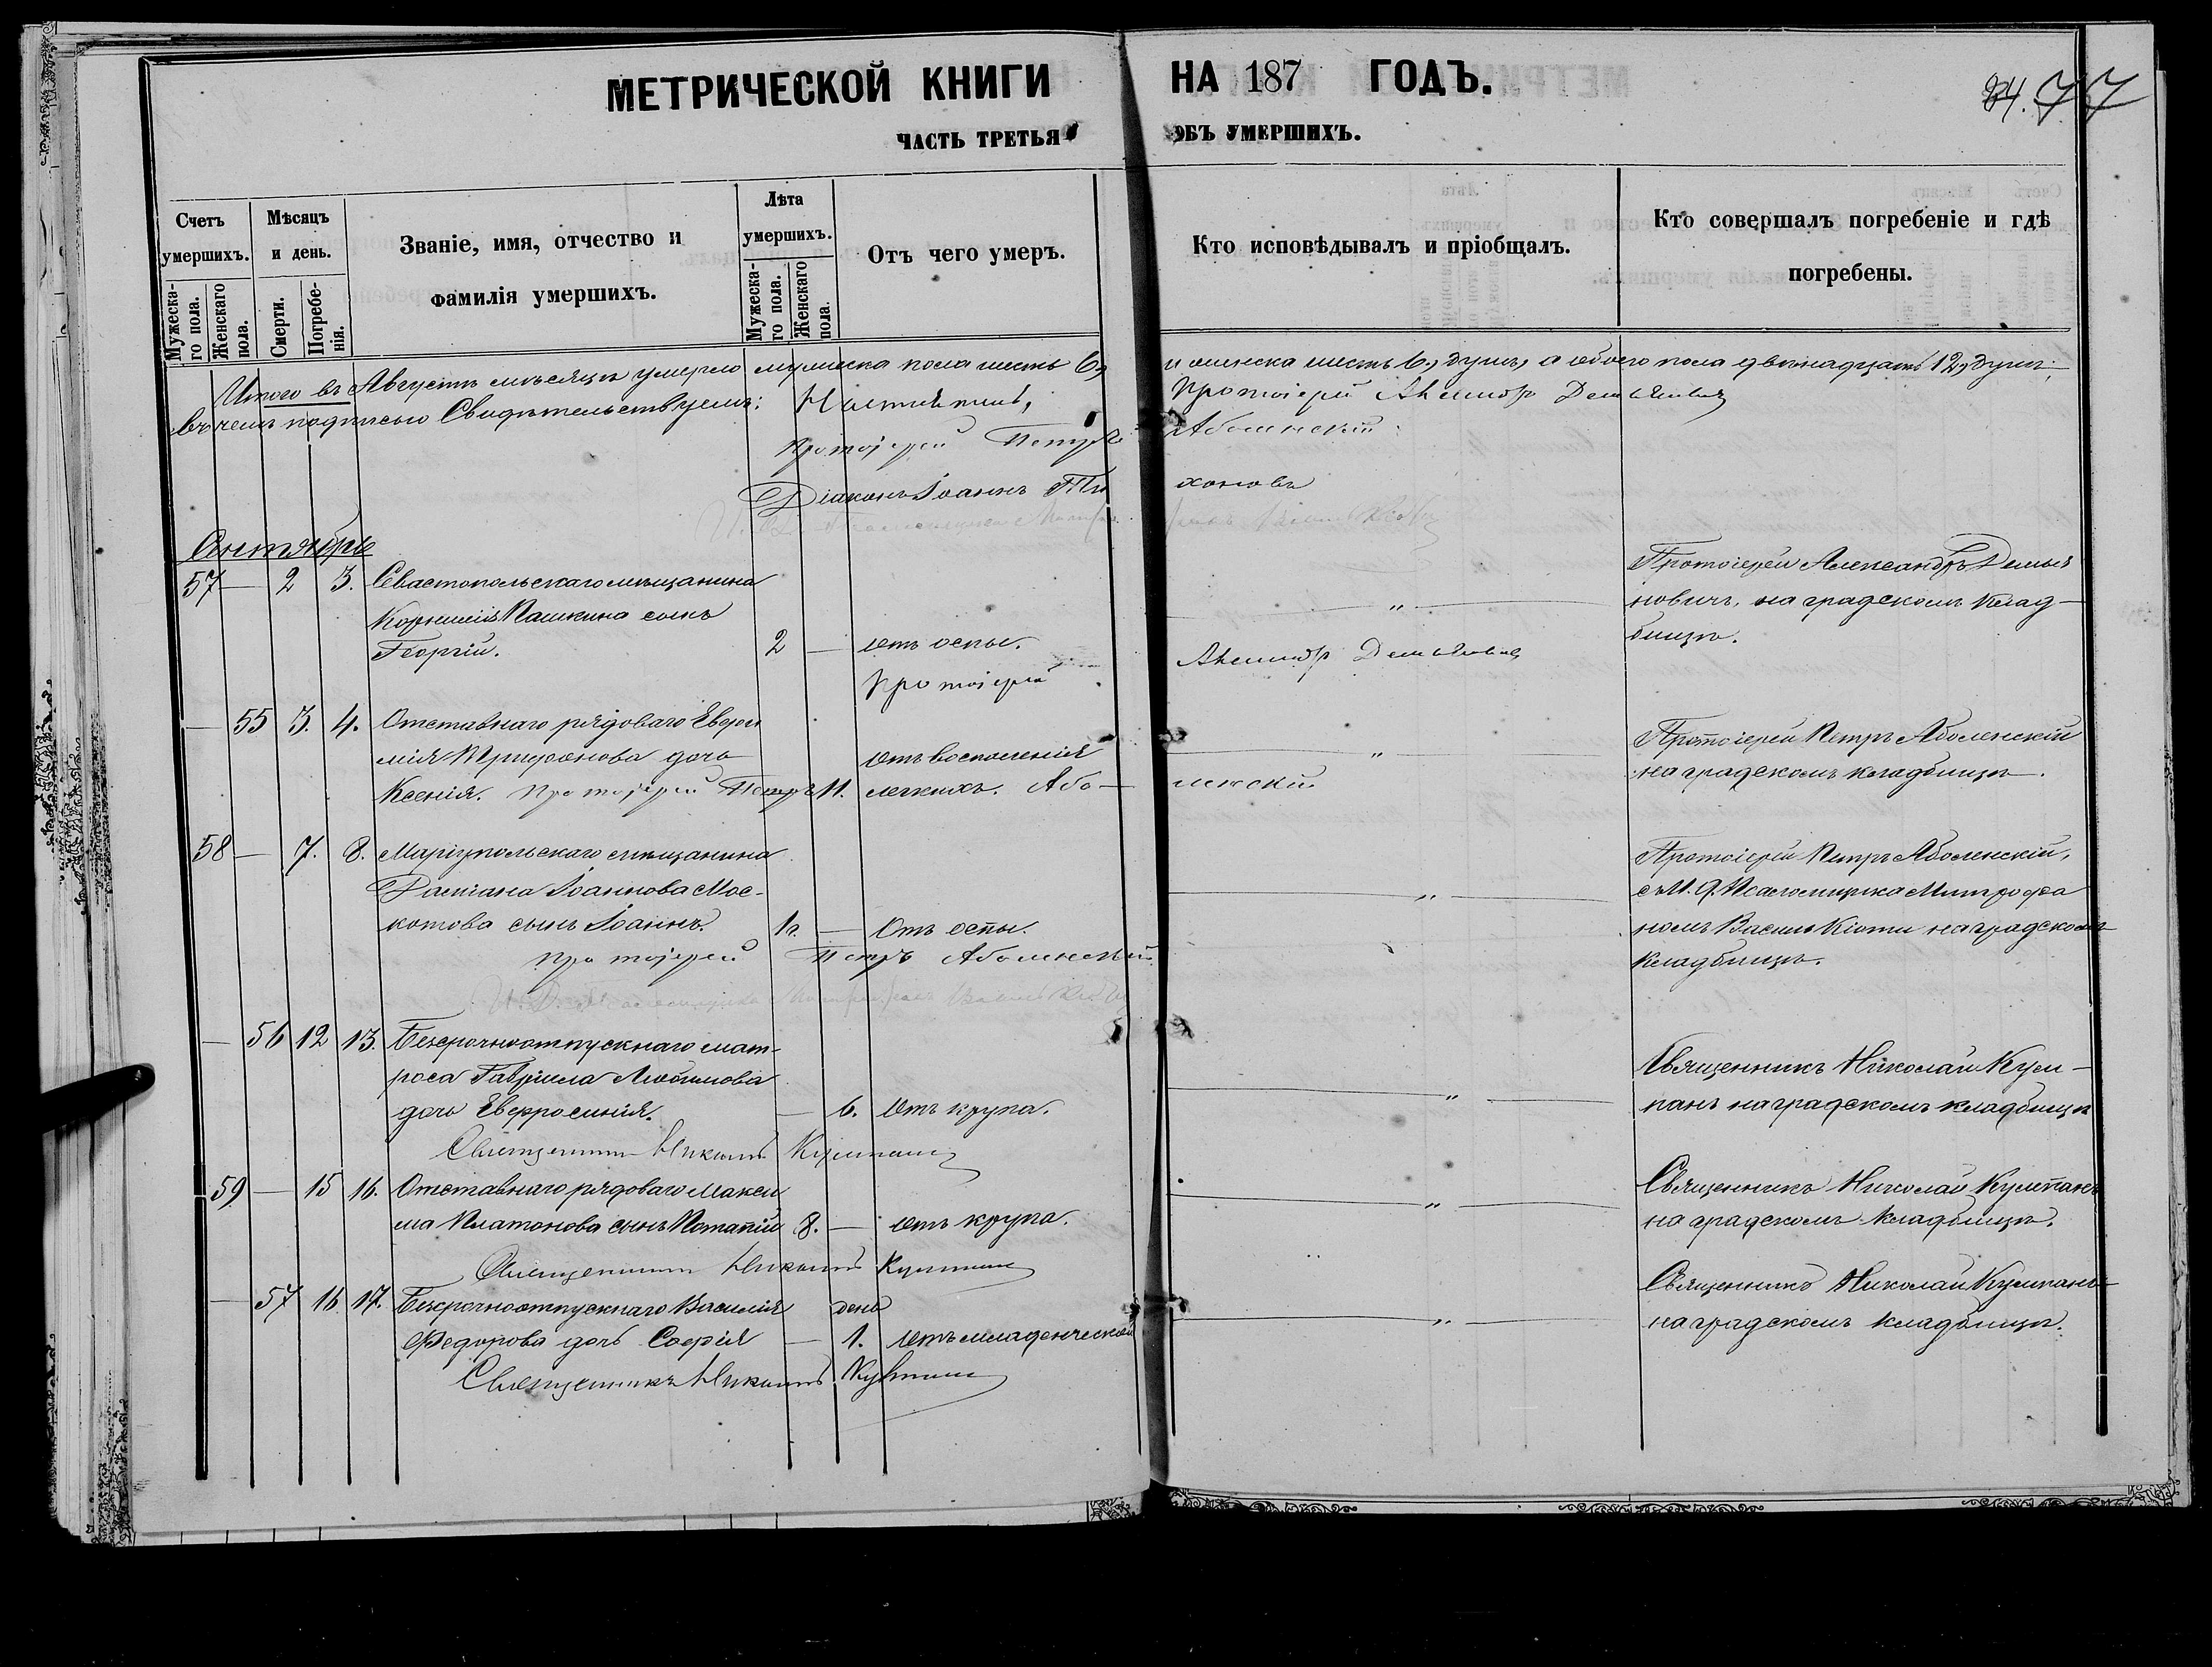 МЕТРИЧЕСКОЙ КНИГИ НА 187 ГОДЪ.
84. 77
ЧАСТЬ ТРЕТЬЯ ОБЪ УМЕРШИХЪ.
Счетъ умершихъ.
Мужеска-го пола.
Женскаго пола.
Мѣсяцъ и день.
Смерти.
Погребе-нія.
Званіе, имя, отчество и фамилія умершихъ.
Лѣта умершихъ.
Мужеска-го пола.
Женскаго пола.
Отъ чего умеръ.
Кто исповѣдывалъ и пріобщалъ.
Кто совершалъ погребеніе и гдѣ погребены.
Итого въ Августѣ мѣсяцѣ умерло мужеска пола шесть 6, и женска шесть 6, душъ, а обоего пола двѣнадцать 12, душъ;
въ чемъ подписью Свидѣтельствуемъ: Протоіерей Демьяновичъ
Протоіерей Петръ Аболенскій
Діаконъ Іоаннъ Тихоновъ
Сентябрь
57 — 2 3. Севастопольскаго мѣщанина
Пашкина сынъ
Георгій. 2 — отъ оспы.
— " —
Протоіерей Александръ Демья
новичъ, на градскомъ клад-
бищѣ.
Протоіерей Демьяновичъ
— 55 3. 4. Отставнаго рядоваго Евѳи
мія Трифонова дочь
Ксенія. 11. отъ воспаленія
легкихъ.
— " —
Протоіерей Петръ Аболенскій
на градскомъ кладбищѣ.
Протоіерей Петръ Аболенскій
58 — 7. 8. Маріупольскаго мѣщанина
Даміана Іоаннова Мос-
котова сынъ Іоаннъ. 1г. — Отъ оспы.
— " —
Протоіерей Петръ Аболенскій,
съ И. д. Псаломщика Митрофа
номъ на градскомъ
кладбищѣ.
Протоіерей Петръ Аболенскій
— 56 12 13. Безсрочноотпускнаго мат-
роса Гавріила Любимова
дочь Евфросинія. — 6. отъ крупа.
— " —
Священникъ Николай Кулм-
панъ на градскомъ кладбищѣ
Священникъ Николай
59 — 15 16. Отставнаго рядоваго Макси
ма Платонова сынъ Потапій 8. — отъ крупа.
— " —
Священникъ Николай
на градскомъ кладбищѣ.
Священникъ Николай
— 57 16. 17. Безсрочноотпускнаго Василія день
Федорова дочь Софія — 1. отъ младенческой
— " —
Священникъ Николай
на градскомъ кладбищѣ.
Священникъ Николай